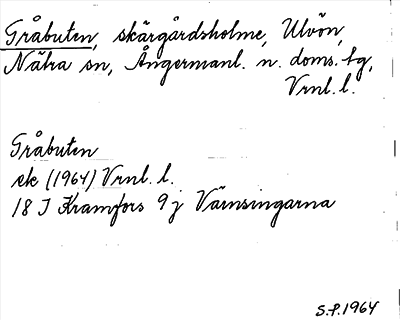 Gråbuten, skärgårdsholme, Ulvön,
Nätra sn, Ångermanl. n. doms. tg,
Vrnl. l.
Gråbuten
ek (1964) Vrnl. l.
18 I Kramfors 9 j Värnsingarna
S.P. 1964